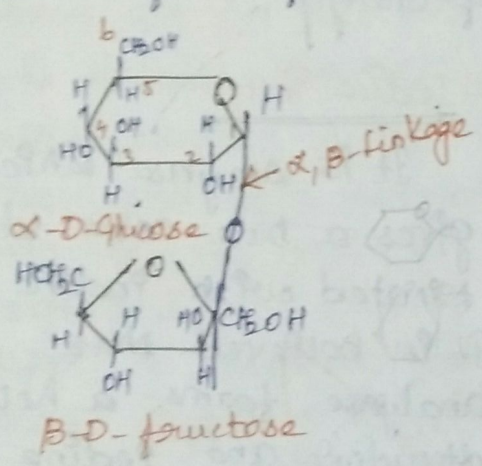 6
CH2OH
H H 5 O H
4 OH H 1
HO 3 2
H OH α, β-linkage
α-D-Glucose O
HOH2C O
H HO CH2OH
H
OH H
β-D-fructose